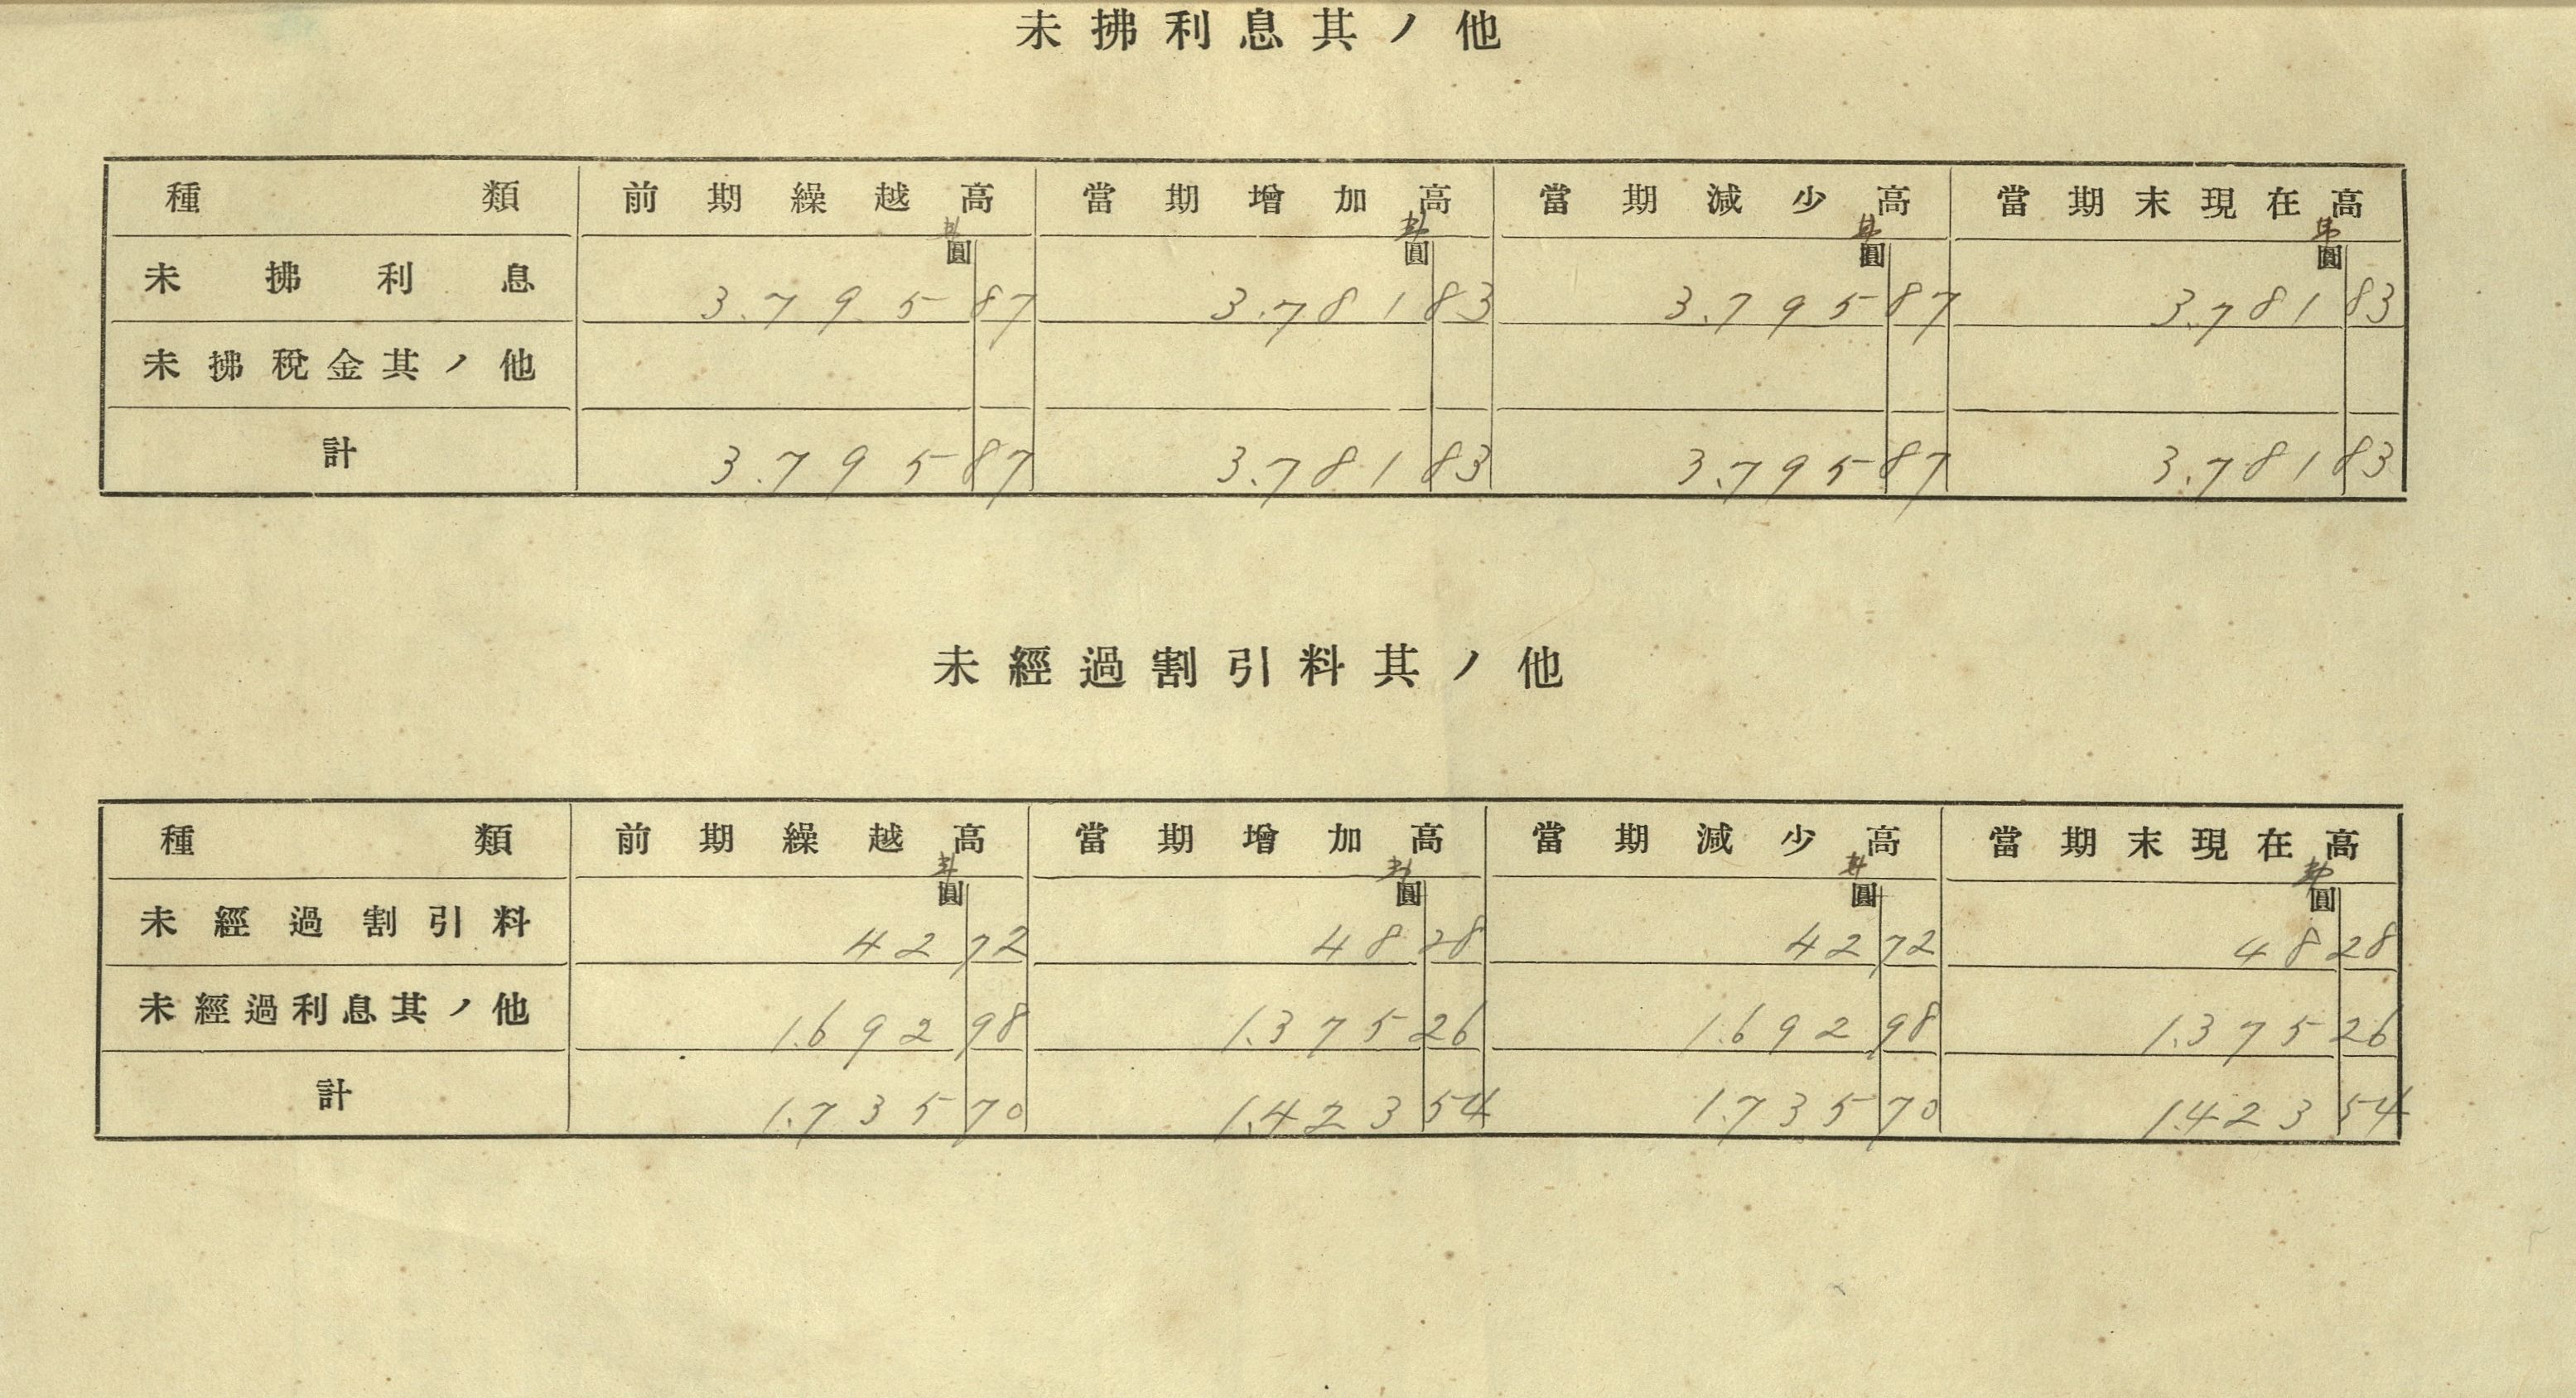 未拂利息其ノ他
種類 前期繰越高 當期增加高 當期減少高 當期末現在高
圓 圓 圓 圓
未拂利息 3.795 87 3.781 83 3.795 87 3.781 83
未拂稅金其ノ他
計 3.795 87 3.781 83 3.795 87 3.781 83
未經過割引料其ノ他
種類 前期繰越高 當期增加高 當期減少高 當期末現在高
圓 圓 圓 圓
未經過割引料 42 72 48 28 42 72 48 28
未經過利息其ノ他 1.692 98 1.375 26 1.692 98 1.375 26
計 1.735 70 1.423 54 1.735 70 1.423 54